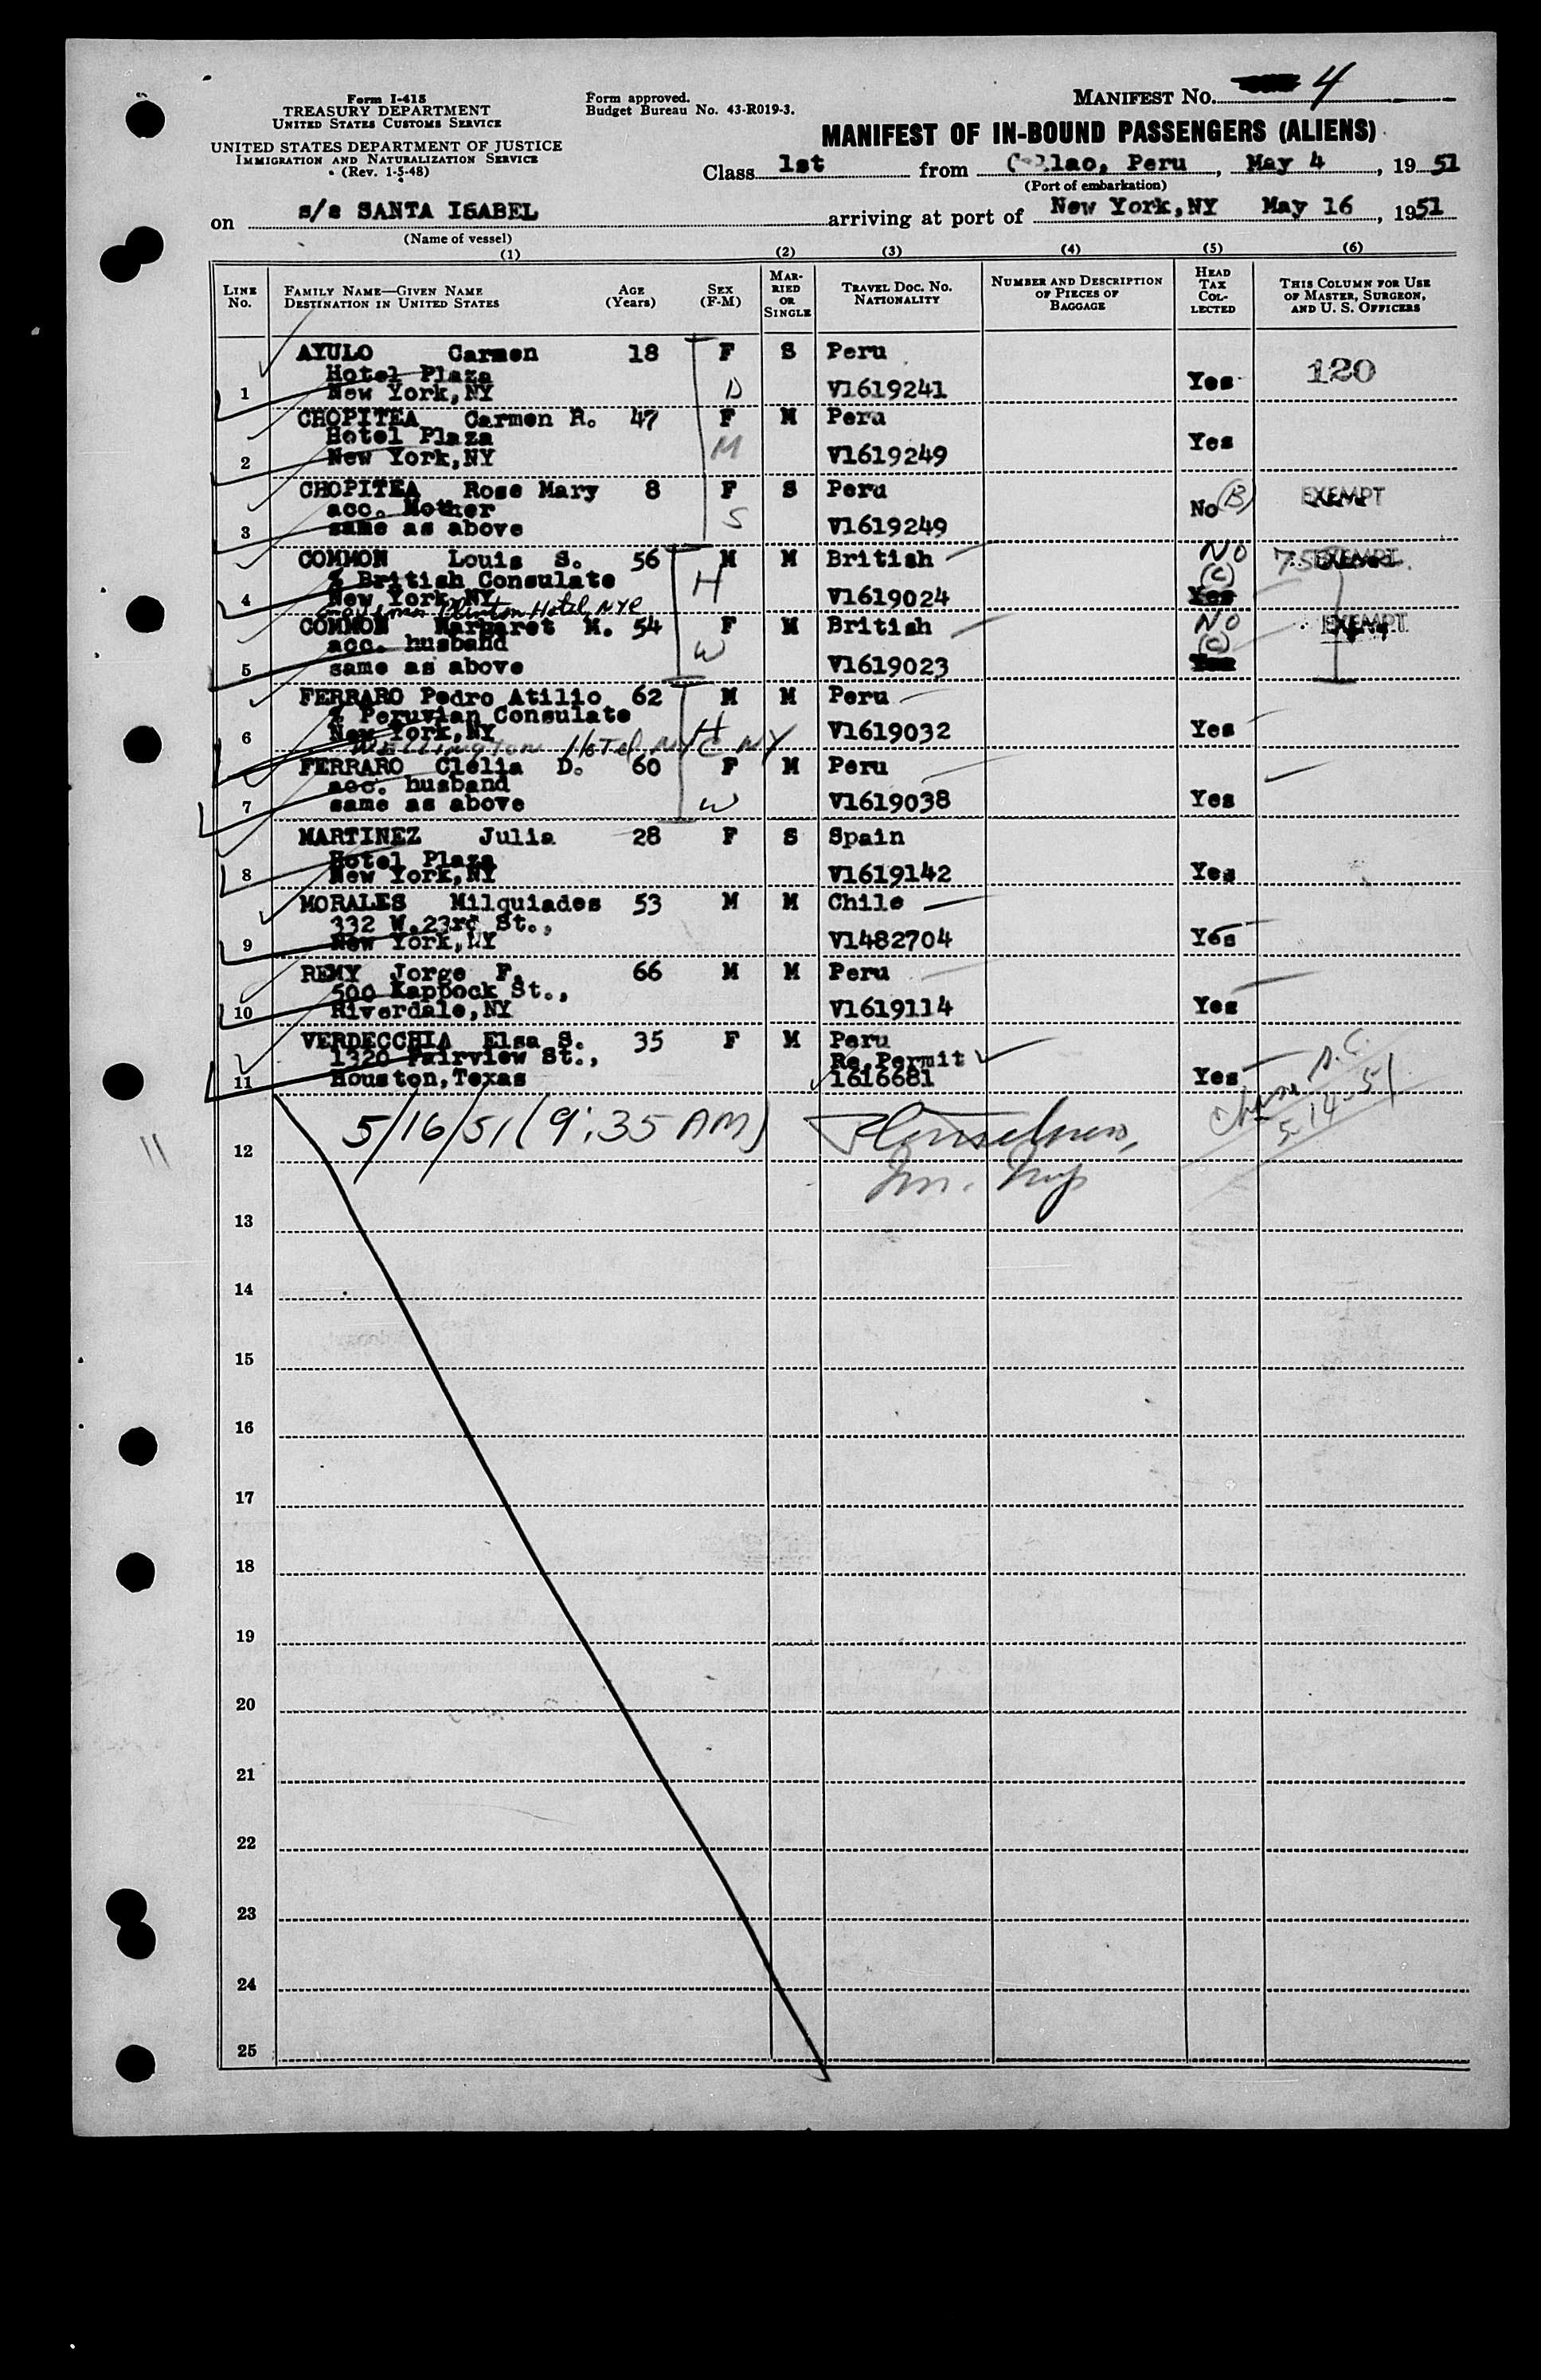 Form I-418
TREASURY DEPARTMENT
UNITED STATES CUSTOMS SERVICE
UNITED STATES DEPARTMENT OF JUSTICE
IMMIGRATION AND NATURALIZATION SERVICE
(Rev. 1-5-48)
Form approved.
Budget Bureau No. 43-R019-3.
MANIFEST NO. 4
MANIFEST OF IN-BOUND PASSENGERS (ALIENS)
Class 1st from Callao, Peru, May 4, 1951
(Port of embarkation)
on s/s SANTA ISABEL arriving at port of New York,NY May 16, 1951
(Name of vessel)
(1) (2) (3) (4) (5) (6)
LINE No. FAMILY NAME—GIVEN NAME DESTINATION IN UNITED STATES AGE (Years) SEX (F-M) MARRIED OR SINGLE TRAVEL DOC. NO. NATIONALITY NUMBER AND DESCRIPTION OF PIECES OF BAGGAGE HEAD TAX COLLECTED THIS COLUMN FOR USE OF MASTER, SURGEON, AND U. S. OFFICERS
AYULO Carmen 18 F S Peru
Hotel Plaza 120
1 New York,NY D V1619241 Yes
CHOPITEA Carmen R. 47 F M Peru
Hotel Plaza Yes
2 New York,NY M V1619249
CHOPITEA Rose Mary 8 F S Peru
acc. Mother No (B) EXEMPT
3 same as above S V1619249
COMMON Louis S. 56 M M British NO
% British Consulate H (C) EXEMPT
4 New York,NY V1619024 Yes
Clinton Hotel NYC
COMMON Margaret M. 54 F M British NO EXEMPT
acc. husband W (C)
5 same as above V1619023 Yes
FERRARO Pedro Atilio 62 M M Peru
% Peruvian Consulate
6 New York,NY H V1619032 Yes
Wellington Hotel NYC NY
FERRARO Clelia D. 60 F M Peru
acc. husband
7 same as above W V1619038 Yes
MARTINEZ Julia 28 F S Spain
Hotel Plaza
8 New York,NY V1619142 Yes
MORALES Milquiades 53 M M Chile
332 W.23rd St.,
9 New York,NY V1482704 Yes
REMY Jorge F. 66 M M Peru
500 Kappock St.,
10 Riverdale,NY V1619114 Yes
VERDECCHIA Elsa S. 35 F M Peru
1320 Fairview St., Re.Permit
11 Houston,Texas 1616681 Yes
5-14-51
5/16/51 (9:35 AM)
11
12
13
14
15
16
17
18
19
20
21
22
23
24
25